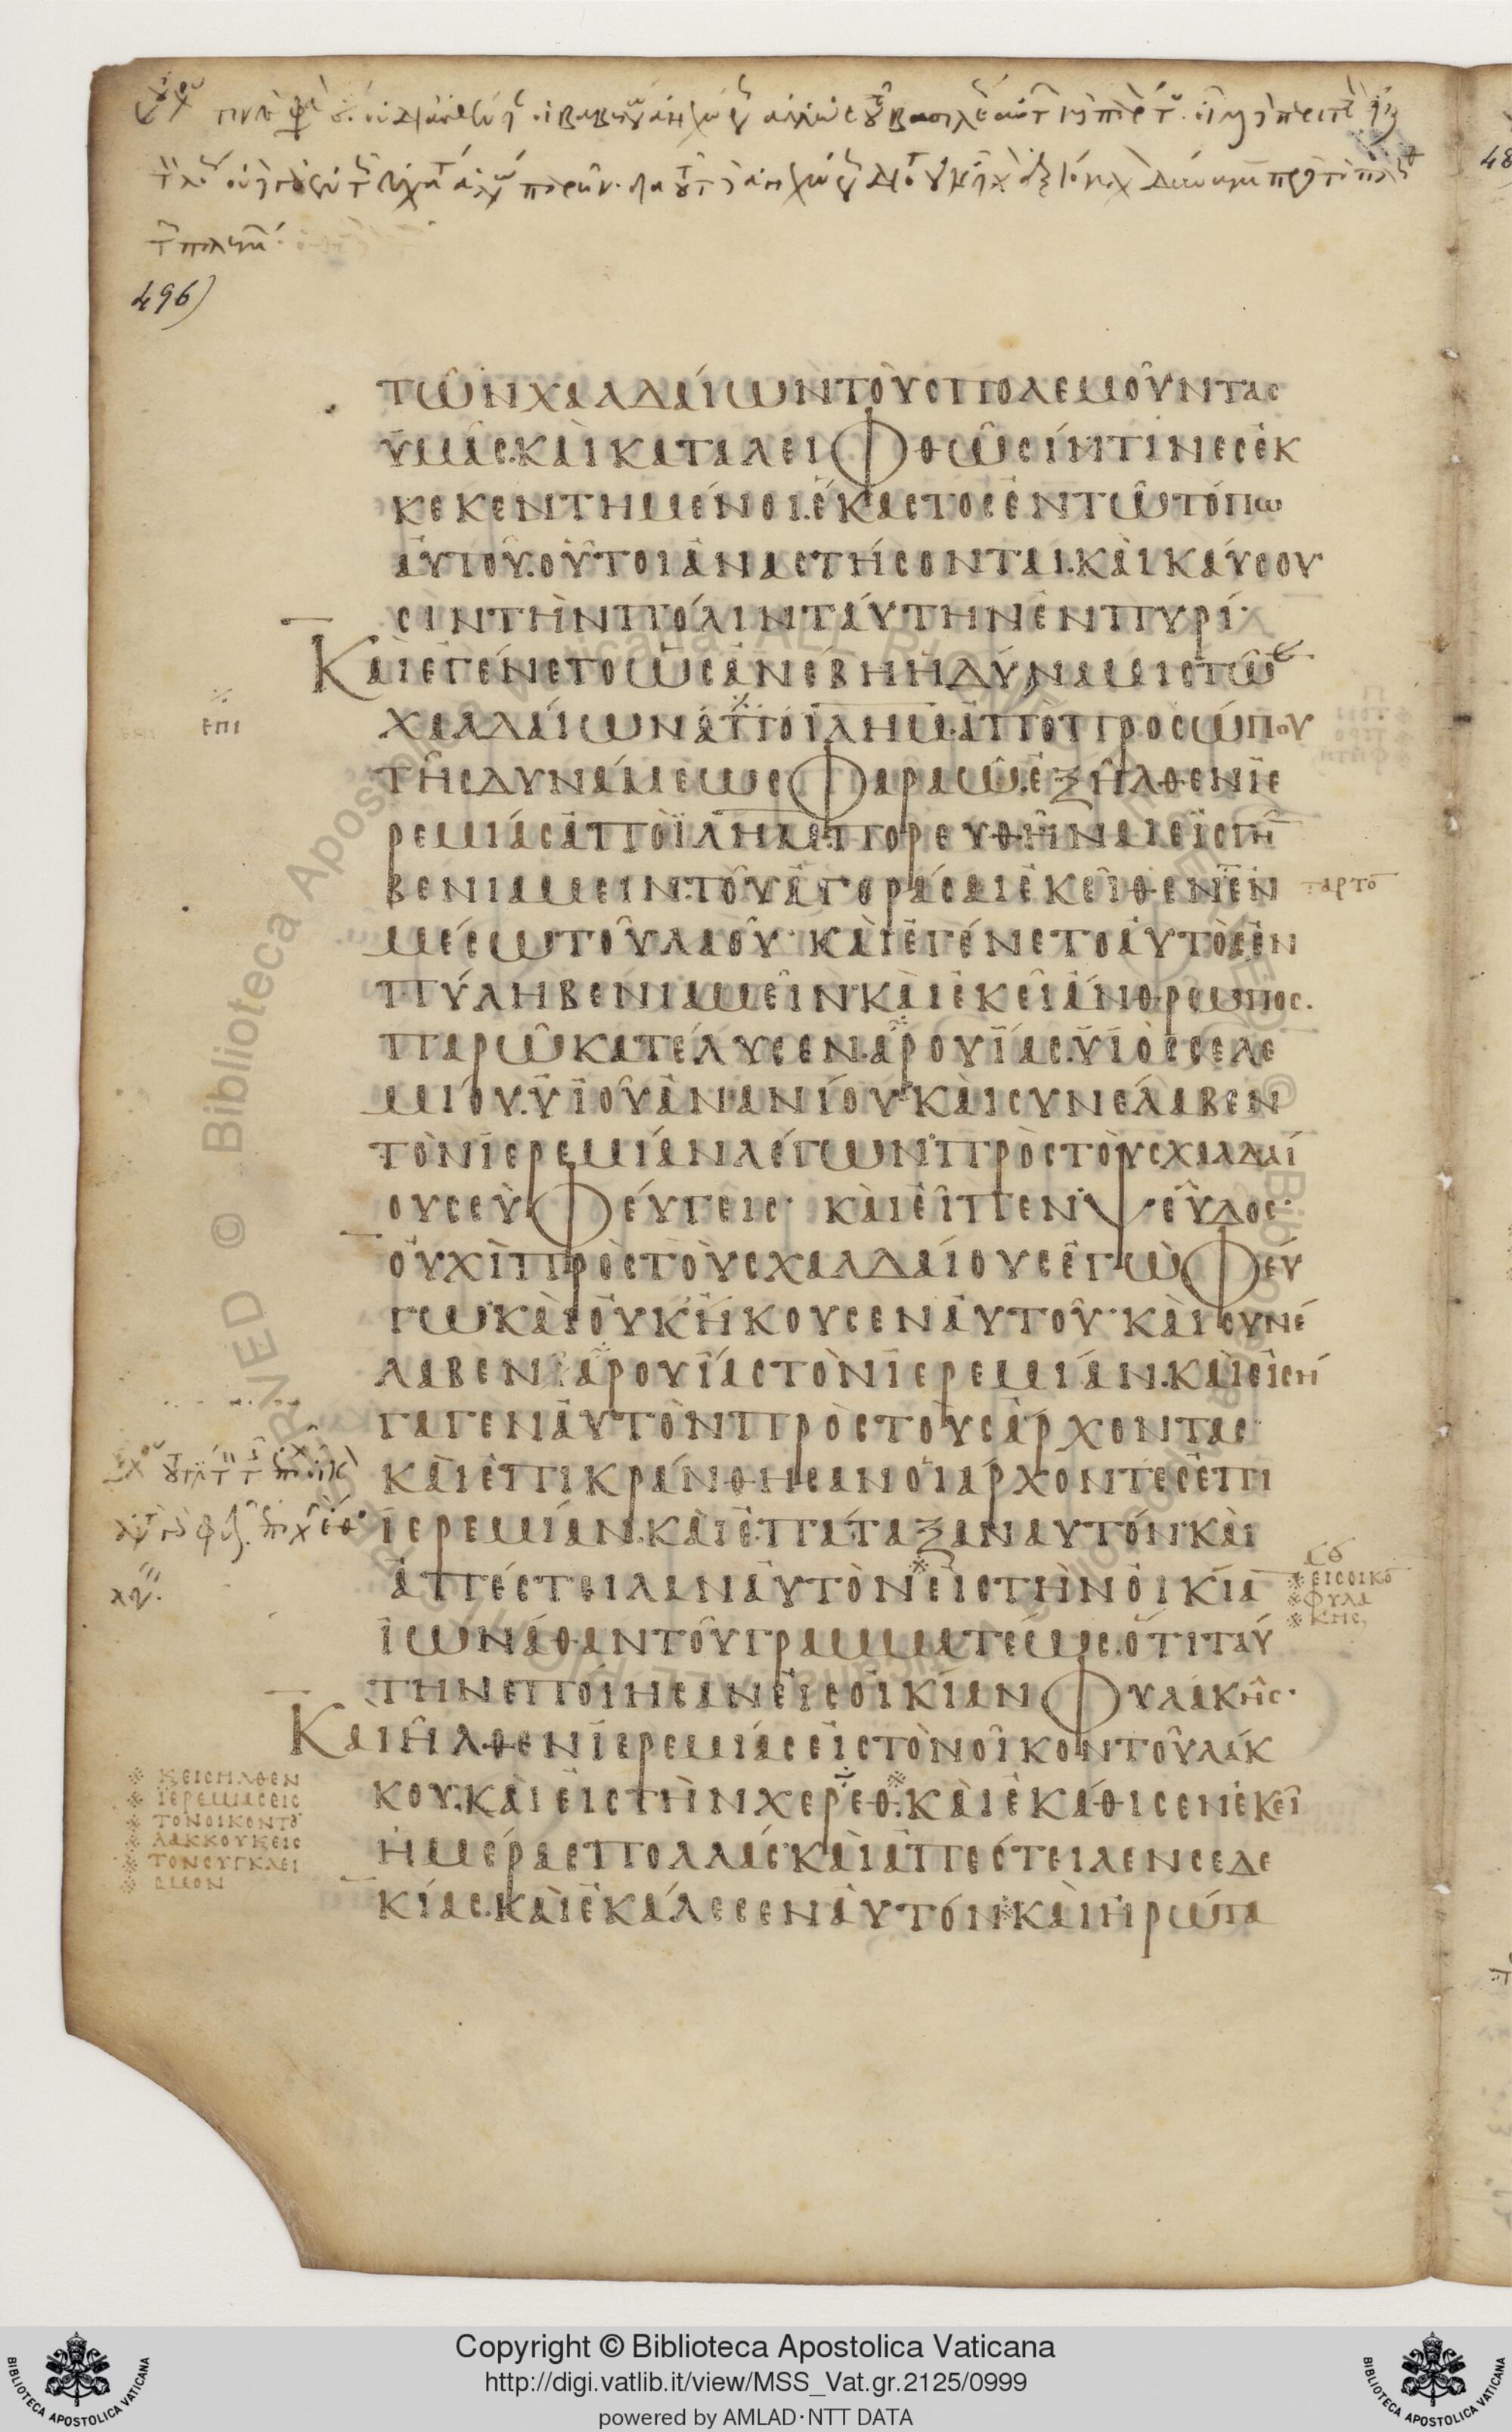 496)
48
τῶν χαλδαίων τοὺς πολεμοῦντας
ὑμᾶς. καὶ καταλειφθῶσίν τινες ἐκ
κεκεντημένοι. ἕκαστος ἐν τῶ τόπω
αὐτοῦ. οὗτοι ἀναστήσονται. καὶ καύσου
σιν τὴν πόλιν ταύτην ἐν πυρί·
Καὶ ἐγένετο ὡς ἀνέβη ἡ δύναμις τῶ
χαλδαίων ἀπὸ ιλημ. ἀπὸ προσώπου
τῆς δυνάμεως φαραώ. ἐξῆλθεν ϊε
ρεμίας ἀπὸ ϊλημ. πορευθῆναι εἰς γῆ
βενιαμειν. τοῦ ἀγοράσαι ἐκεῖθεν ἐν
μέσω τοῦ λαοῦ· καὶ ἐγένετο αὐτὸς ἐν
πύλη βενιαμεὶν· καὶ ἐκεῖ ἄνθρωπος.
παρ ὧ κατέλυσεν. ἀρουΐας. ϋϊὸς σελε
μίου. ϋϊοῦ ἀνανίου· καὶ συνέλαβεν
τὸν ϊερεμίαν λέγων· πρὸς τοὺς χαλδαί
ους σεὺ φεύγεις· καὶ εἶπεν· ψεῦδος·
οὐχὶ πρὸς τοὺς χαλδαίους ἐγὼ φεύ
γω· καὶ οὐκ ἤκουσεν αὐτοῦ· καὶ συνέ
λαβεν ἀρουΐας τὸν ϊερεμίαν. καὶ εἰσή
γαγεν αὐτὸν πρὸς τοὺς ἄρχοντας·
καὶ ἐπικράνθησαν οἱ ἄρχοντες ἐπὶ
ϊερεμίαν. καὶ ἐπάταξαν αυτόν· καὶ
ἀπέστειλαν αὐτὸν εἰς τὴν οἰκία
ϊωνάθαν τοῦ γραμματέως. ὅτι ταύ
την εποίησαν εἰς οἰκίαν φυλακῆς·
Καὶ ἦλθεν ϊερεμίας εἰς τὸν οἶκον τοῦ λάκ
κου. καὶ εἰς τὴν χερεθ. καὶ ἐκάθισεν ἐκεῖ
ἡμέρας πολλάς· καὶ ἀπέστειλεν σεδε
κίας. καὶ ἐκάλεσεν αὐτόν· καὶ ἠρώτα
επι
αρτο
※ εις οικο
※ φυλα
※ κης,
※ κ εισηλθεν
※ ιερεμιας εις
※ τον οικον του
※ λακκου κ εις
※ τον συγκλει
※ σμον
Copyright © Biblioteca Apostolica Vaticana
http://digi.vatlib.it/view/MSS_Vat.gr.2125/0999
powered by AMLAD·NTT DATA
BIBLIOTECA APOSTOLICA VATICANA
BIBLIOTECA APOSTOLICA VATICANA